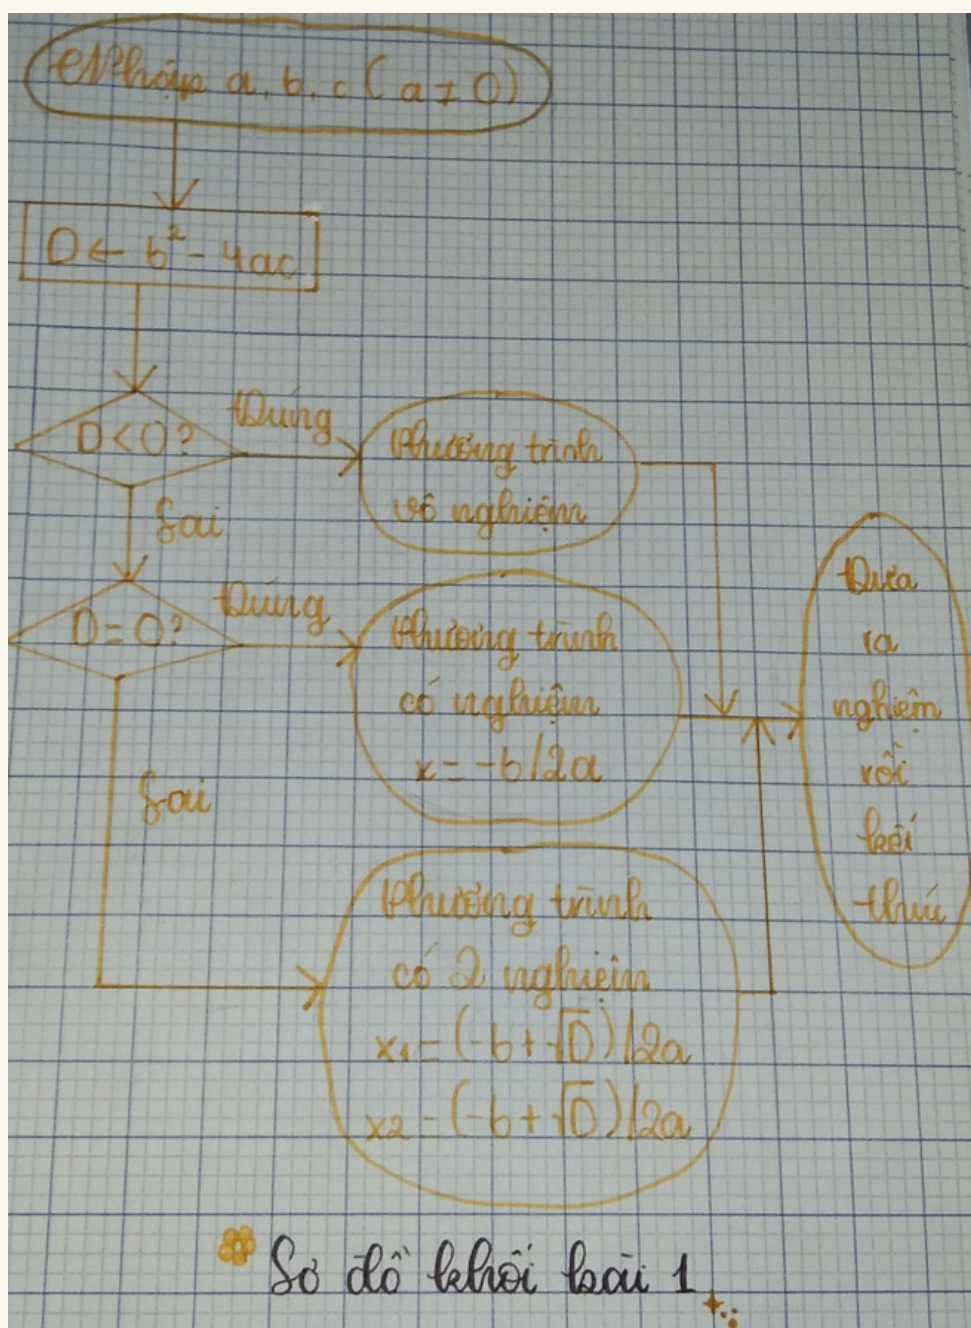 Nhập a, b, c ( a ≠ 0 )
D ← b² - 4ac
D < 0 ?
Đúng
Phương trình
vô nghiệm
Sai
D = 0 ?
Đúng
Phương trình
có nghiệm
x = -b/2a
Sai
Phương trình
có 2 nghiệm
x1 = (-b + √D)/2a
x2 = (-b + √D)/2a
Đưa
ra
nghiệm
rồi
kết
thúc
Sơ đồ khối bài 1